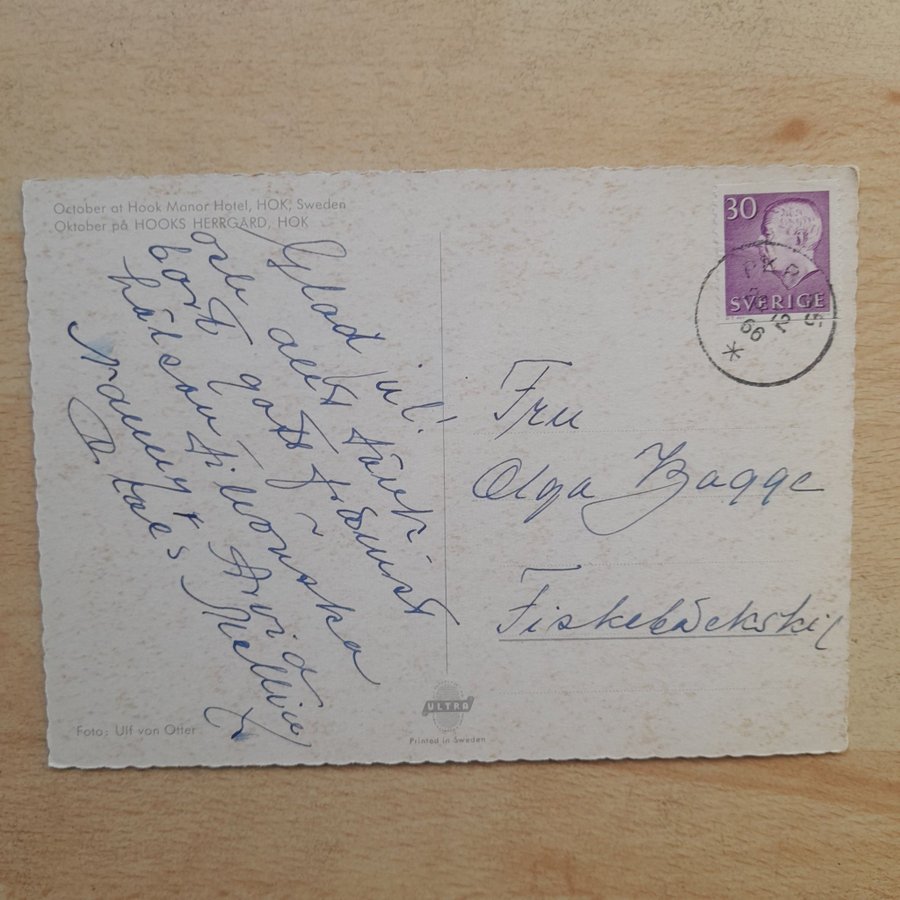 October at Hook Manor Hotel, HOK, Sweden
Oktober på HOOKS HERRGÅRD, HOK
Glad jul!
och allt tänk-
bart gott främst
hälsan tillönska
Nanny + Arvid
30
SVERIGE
PKP 5
12
66
Fru
Olga Bagge
Fiskebäckskil
Foto: Ulf von Otter
ULTRA
Printed in Sweden